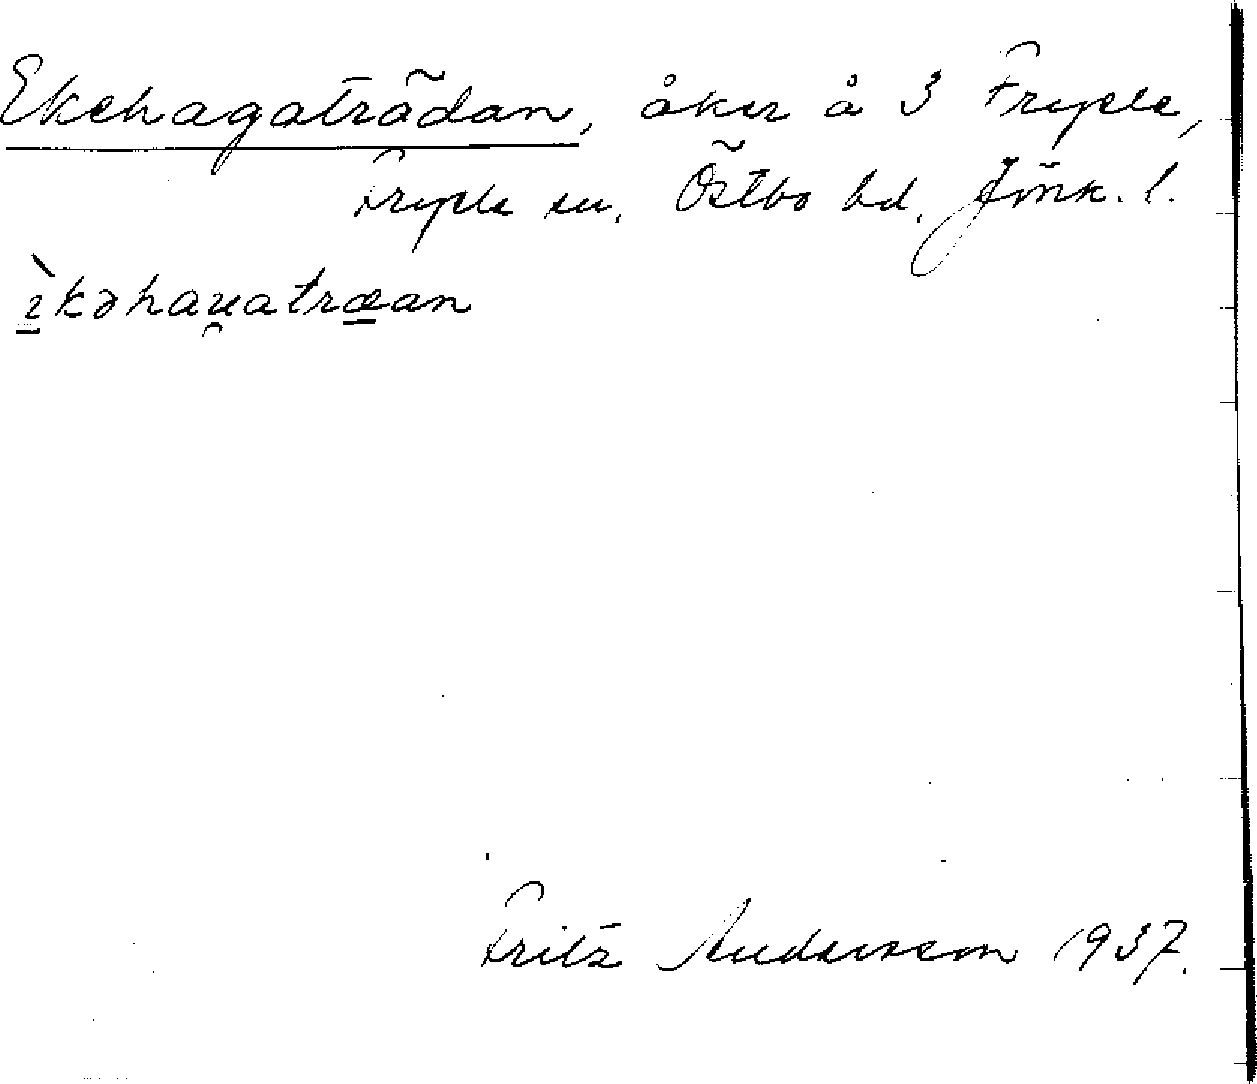 Ekehagaträdan, åker å 3 Fryele,
Fryele sn, Östbo hd, Jönk. l.
ìkəhau̯atræan
Fritz Andersson 1937.